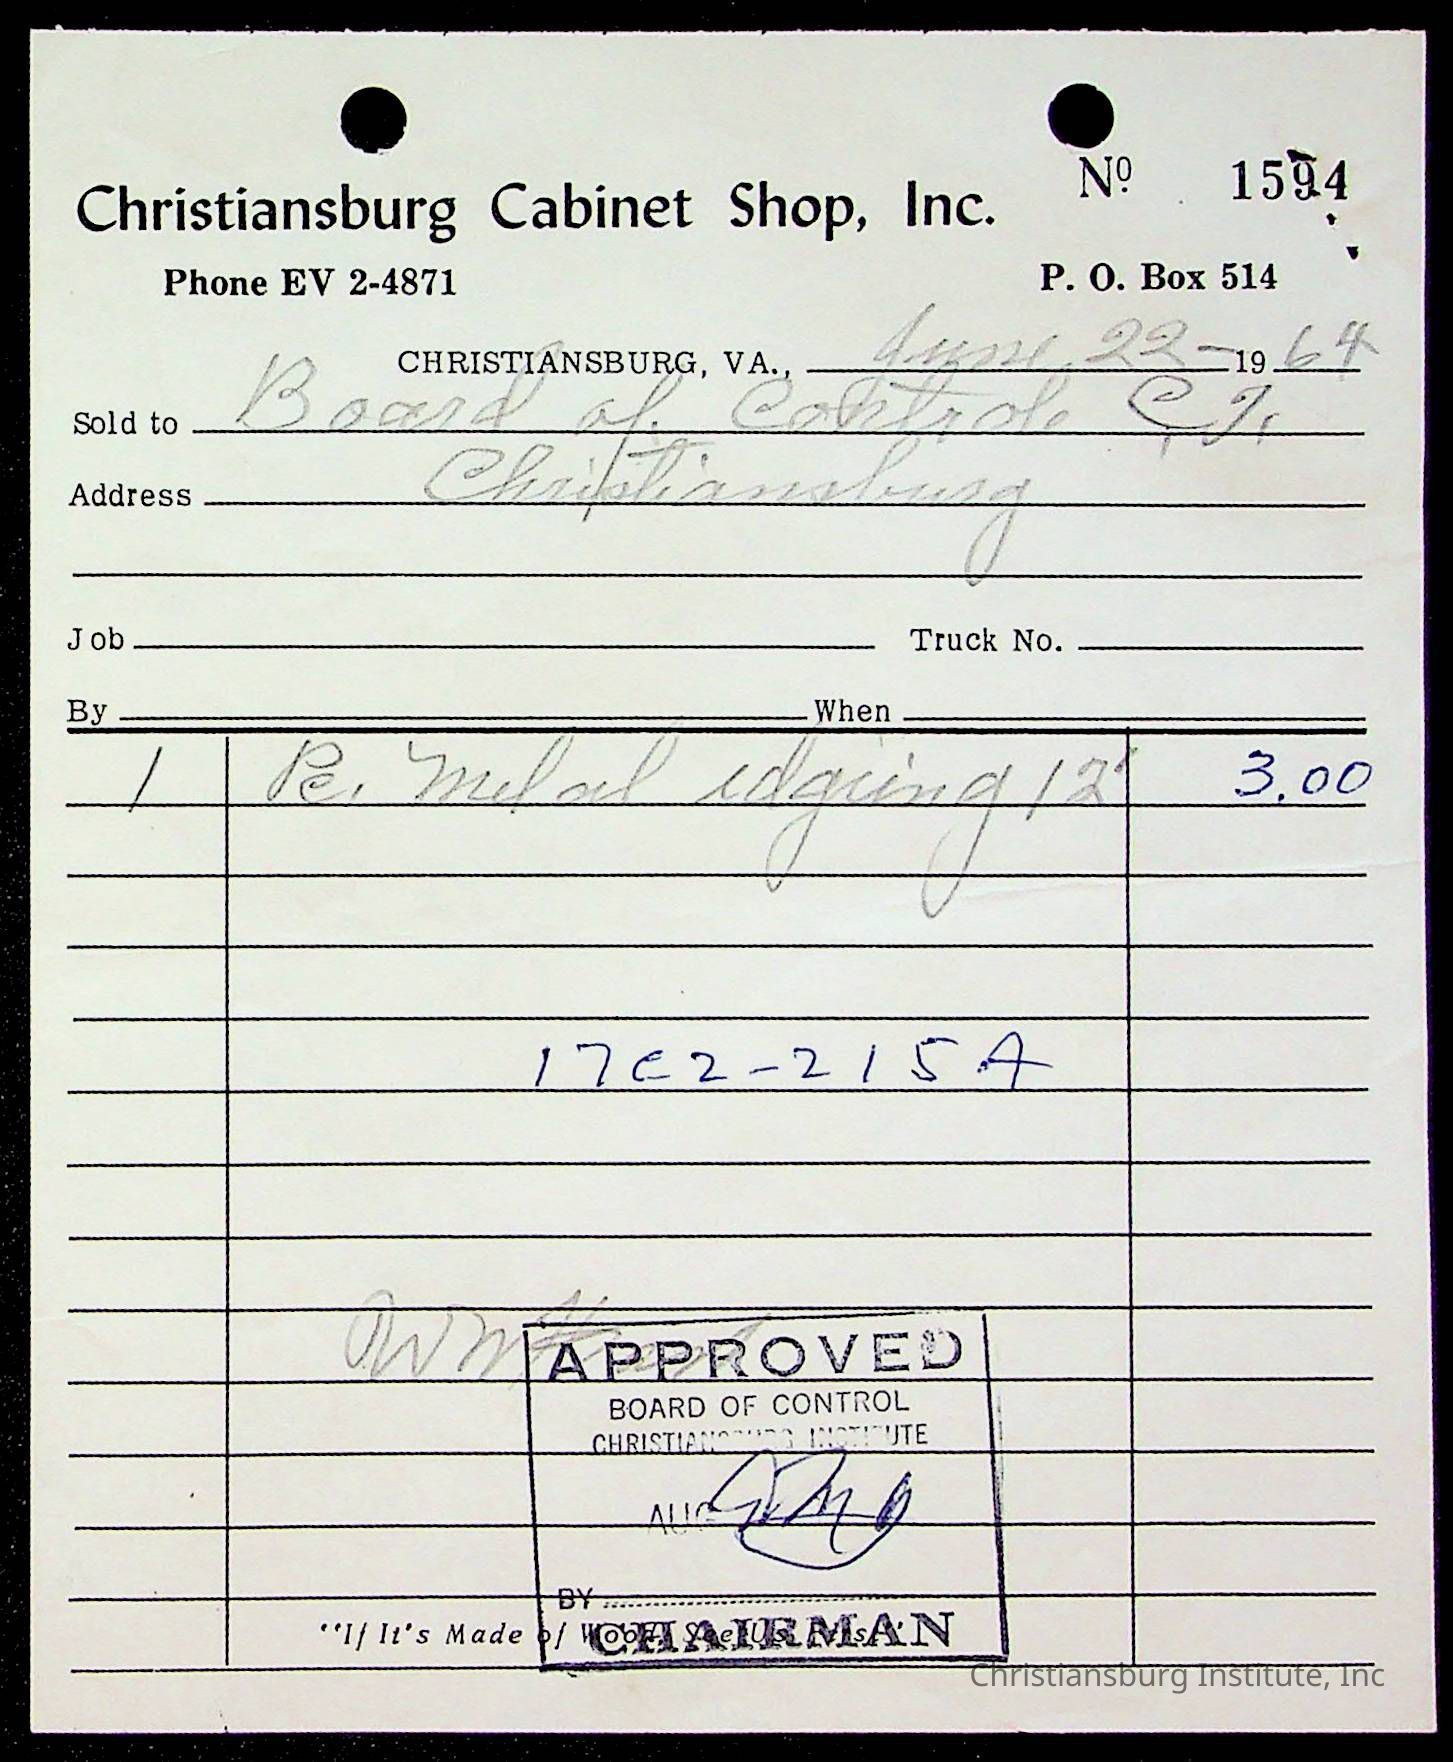 Nº 1594
Christiansburg Cabinet Shop, Inc.
Phone EV 2-4871 P. O. Box 514
CHRISTIANSBURG, VA., June 22- 1964
Sold to Board of Control C.I.
Address Christiansburg
Job Truck No.
By When
1 Pc. Metal edgiing 12' 3.00
17C2-215A
APPROVED
BOARD OF CONTROL
CHRISTIANSBURG INSTITUTE
AUG
BY
"If It's Made of Wood, See Us First"
CHAIRMAN
Christiansburg Institute, Inc